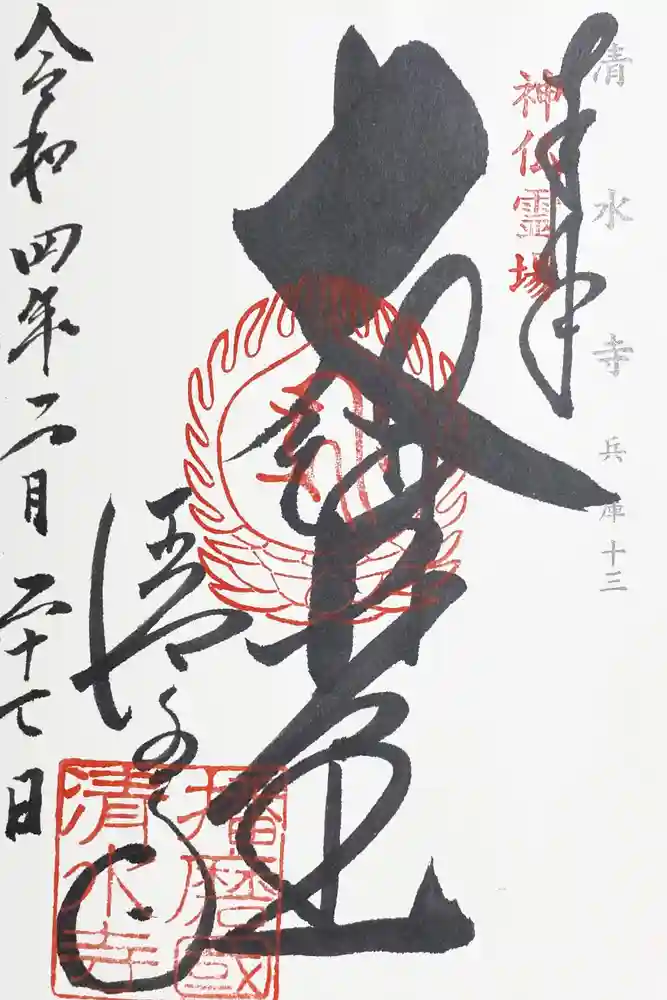 清水寺 兵庫十三
神仏霊場
奉拝
大講堂
清水寺
令和四年二月二十七日
播磨國
清水寺